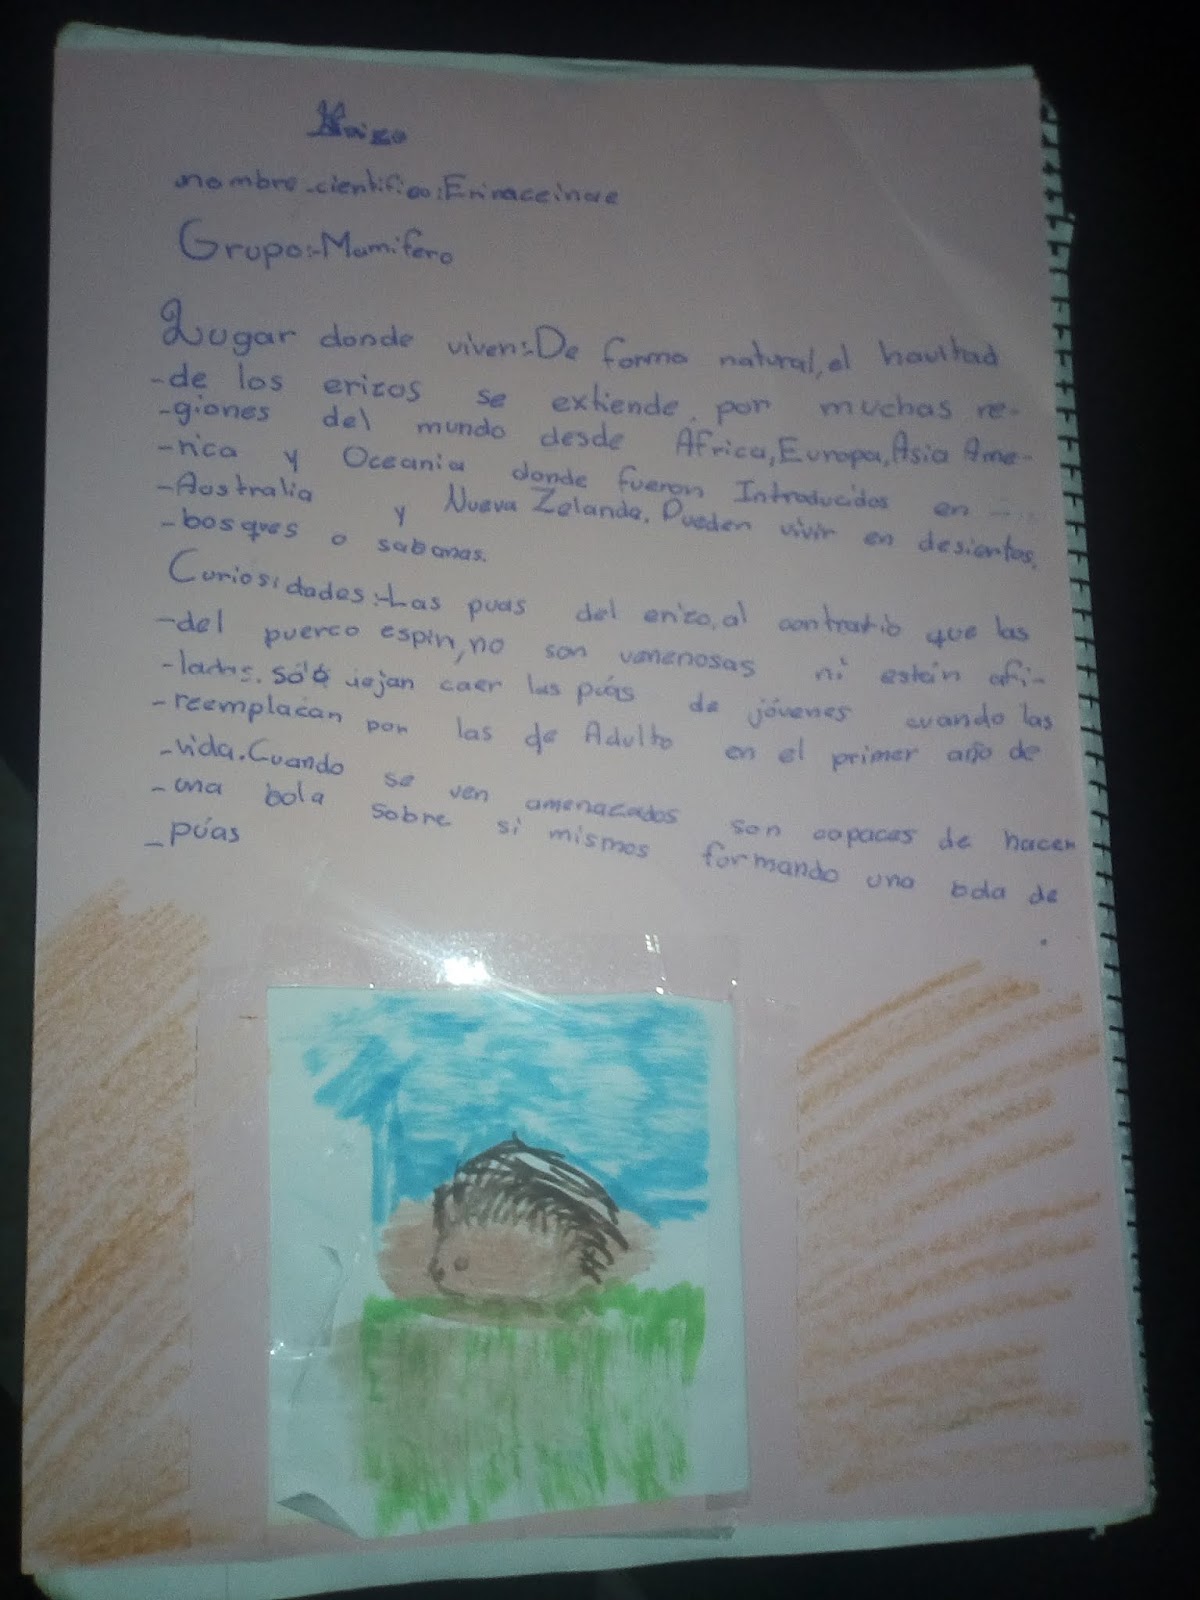 Erizo
nombre cientifico: Erinaceinae
Grupo:-Mamifero
Lugar donde viven:-De forma natural, el havitad
-de los erizos se extiende por muchas re-
-giones del mundo desde Africa, Europa, Asia Ame-
-rica y Oceania donde fueron Introducidos en
-Australia y Nueva Zelanda. Pueden vivir en desiertos,
-bosques o sabanas.
Curiosidades:-Las puas del erizo, al contratio que las
-del puerco espin, no son venenosas ni están afi-
-ladas. sólo dejan caer las púas de jóvenes cuando las
-reemplacan por las de Adulto en el primer año de
-vida. Cuando se ven amenacados son capaces de hacer
-una bola sobre si mismos formando una bola de
-púas